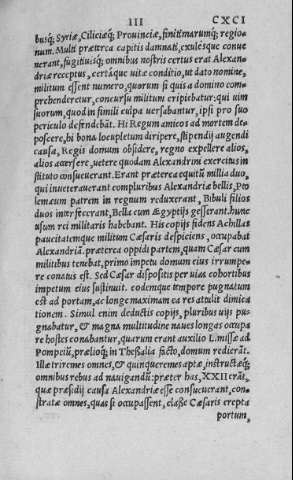 III CXCI
busq; Syriæ, Ciliciæq; Prouinciæ, finitimarumq; regio-
num. Multi præterea capitis damnati, exulesque conue
nerant, fugitiuisq; omnibus nostris certus erat Alexan-
driæ receptus, certáque uitæ conditio, ut dato nomine,
militum essent numero, quorum si quis a domino com-
prehenderetur, concursu militum eripiebatur: qui uim
suorum, quod in simili culpa uersabantur, ipsi pro suo
periculo defendebāt. Hi Regum amicos ad mortem de-
poscere, hi bona locupletum diripere, stipendij augendi
causa, Regis domum obsidere, regno expellere alios,
alios arcessere, uetere quodam Alexandrini exercitus in
stituto consueuerant. Erant præterea equitū millia duo,
qui inueterauerant compluribus Alexandriæ bellis, Pto
lemæum patrem in regnum reduxerant, Bibuli filios
duos interfecerant, Bella cum Ægyptijs gesserant, hunc
usum rei militaris habebant. His copijs fidens Achillas
paucitatemque militum Cæsaris despiciens, occupabat
Alexandriā. præterea oppidi partem, quam Cæsar cum
militibus tenebat, primo impetu domum eius irrumpe-
re conatus est. Sed Cæsar dispositis per uias cohortibus
impetum eius sustinuit. eodemque tempore pugnatum
est ad portam, ac longe maximam ea res attulit dimica
tionem. Simul enim deductis copijs, pluribus uijs pu-
gnabatur, & magna multitudine naues longas occupa
re hostes conabantur, quarum erant auxilio L. missæ ad
Pompeiū, prælioq; in Thessalia facto, domum redierāt.
Illæ triremes omnes, & quinqueremes aptæ, instructæq;
omnibus rebus ad nauigandū: præter has, XXII erāt,
quæ præsidij causa Alexandriæ esse consueuerant, con-
stratæ omnes, quas si occupassent, classe Cæsaris erepta
portum,